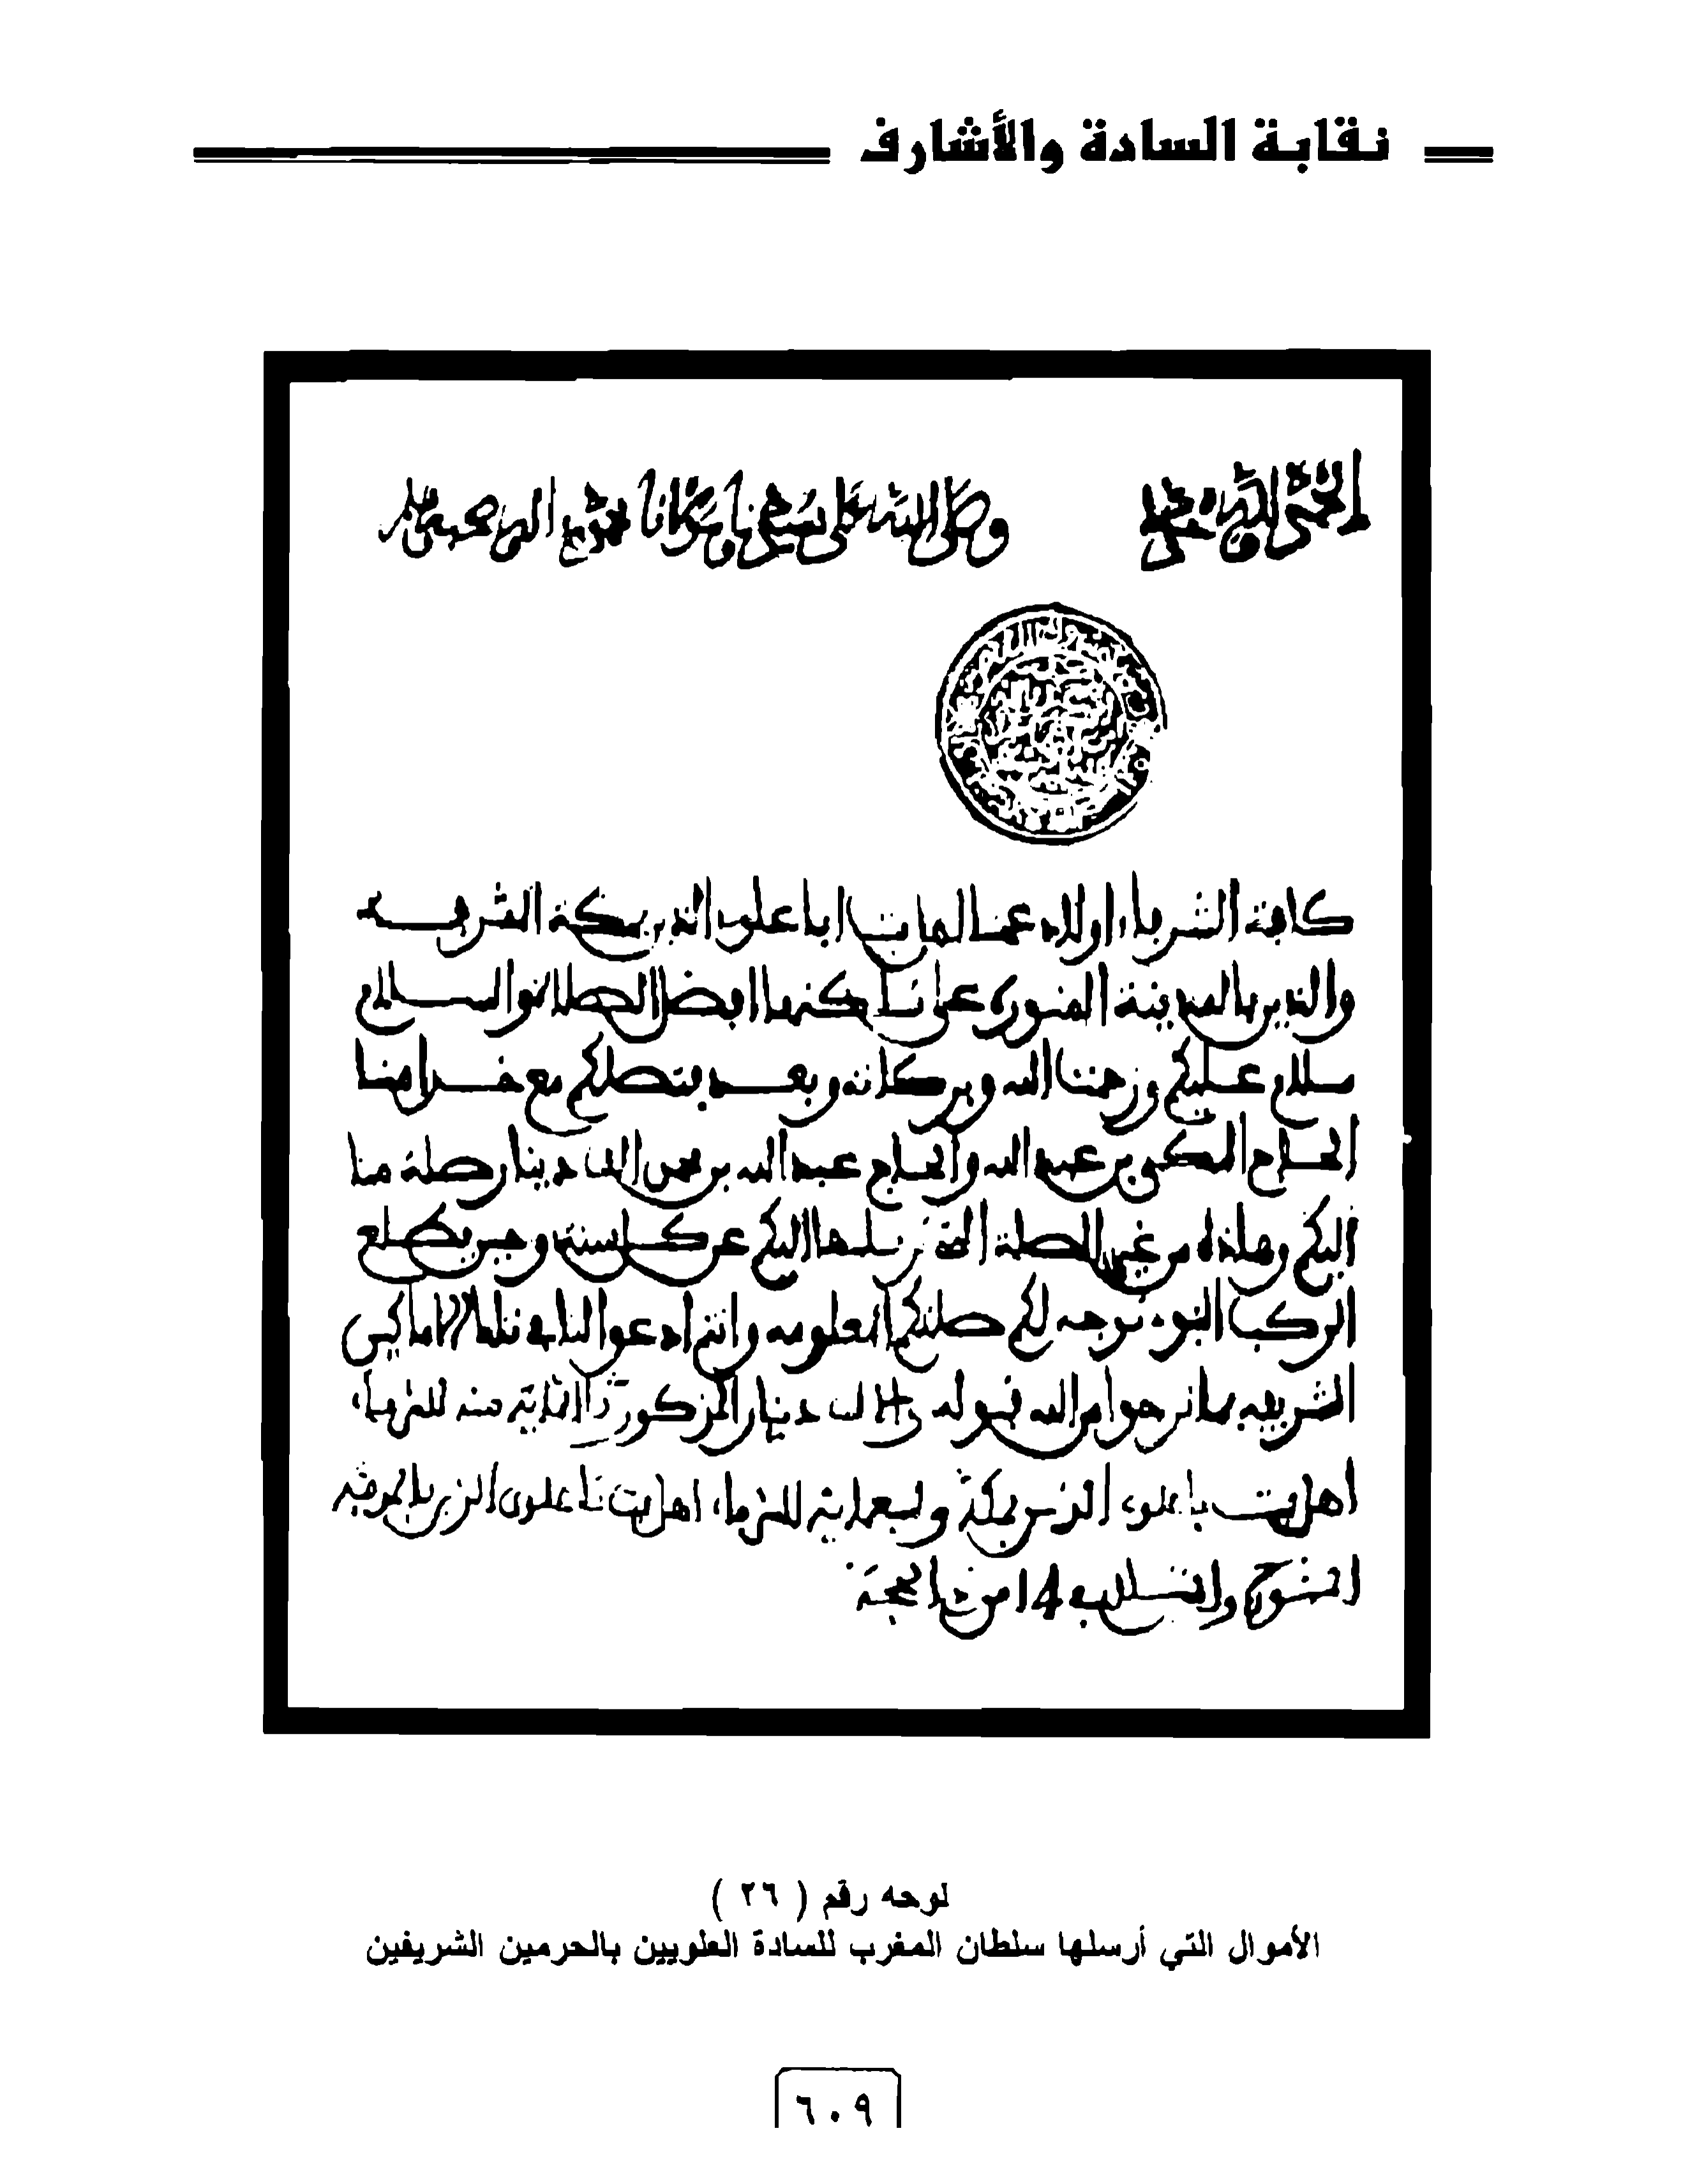 نقابة السادة والأشارف
الحمد لله وحده وصلى الله على سيدنا ومولانا محمد وآله وصحبه وسلم
كافة الشرفاء اولاد عمنا اهل بيت ابا علوي الذين بمكة الشريفة
والذين بالمدينة المنورة على ساكنها افضل الصلاة والسلام
سلام عليكم ورحمت الله وبركاته وبعد يتصلكم مع خدامنا
الحاج المكي بن عبد الله والحاج عبد الله بن دينار صلة منا
اليكم وهاذه من غير الصلة التي نرسلها اليكم عن كل سنة وحين يطلع
الركب النبوي نوجه لكم صلتكم المعلومه وانتم ادعوا لنا في تلك الاماكن
الشريفه بما نرجوا من الله قبوله دينار المذكورة منه للشرفاء
اهل بيت باعلوي الذين بمكة للشرفاء اهل بيت باعلوي الذين
والسلام 14 من ذي الحجة
لوحه رقم ( ٢٦ )
الأموال التي أرسلها سلطان المغرب للسادة العلويين بالحرمين الشريفين
٦٠٩